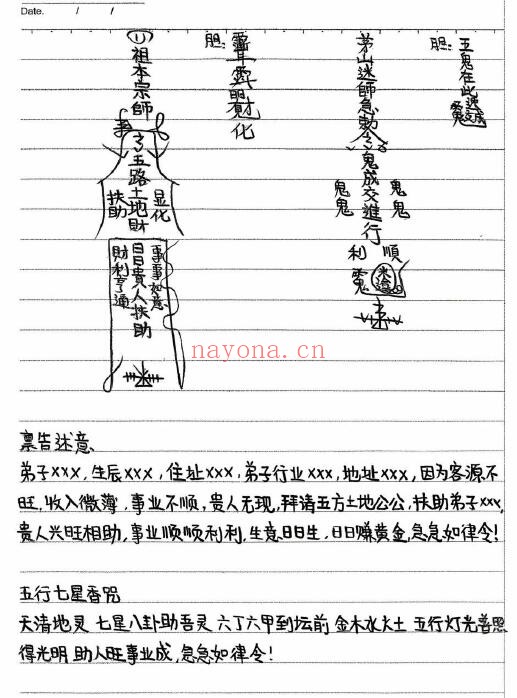 Date. / /
(1)祖本宗師
五路土地財
扶助
显化
日日貴人扶助
事事如意
財利亨通
胆:
財化
茅山迷師急勅令鬼成交進行
鬼鬼
鬼鬼
順
利
胆:五鬼在此
nayona.cn
禀告述意、
弟子xxx,生辰xxx,住址xxx,弟子行业xxx,地址xxx,因为客源不
旺,收入微薄,事业不顺,贵人无现,拜请五方土地公公,扶助弟子xxx,
贵人兴旺相助,事业顺顺利利,生意日日生,日日赚黄金,急急如律令!
五行七星香咒
天清地灵 七星八卦助吾灵 六丁六甲到坛前 金木水火土 五行灯光善照
得光明 助人旺事业成,急急如律令!